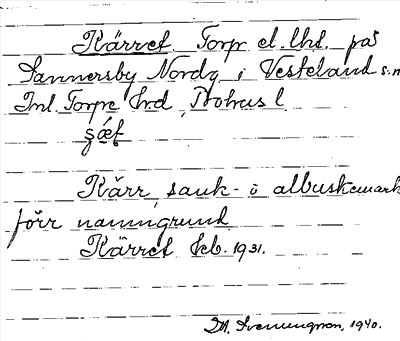 Kärret Torp el. lht. på
Sannersby Nordg i Vesteland s:n
Inl. Torpe hrd Bohus l
Kärr, sank- o albuskmark
förr namngrund
Kärret feb. 1931.
1940.